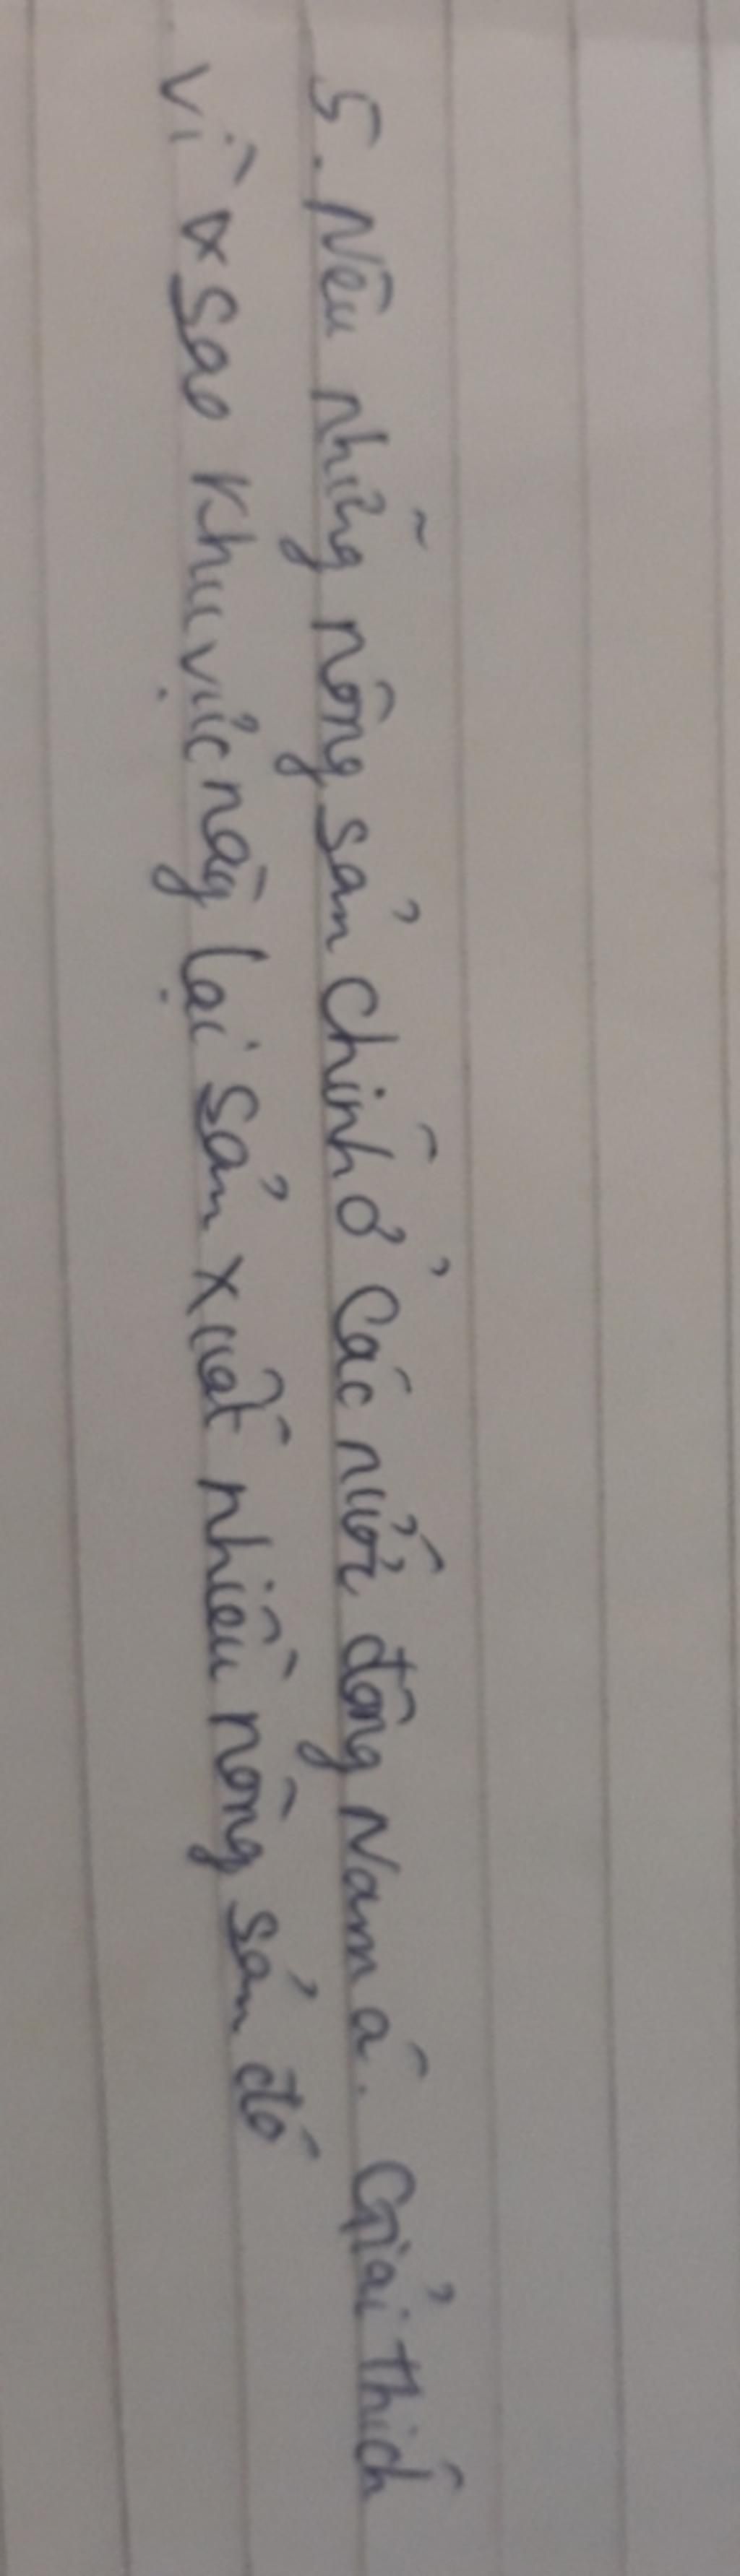 5. Nêu những nông sản chính ở các nước đông Nam á. Giải thích
vì sao khu vực này lại sản xuất nhiều nông sản đó